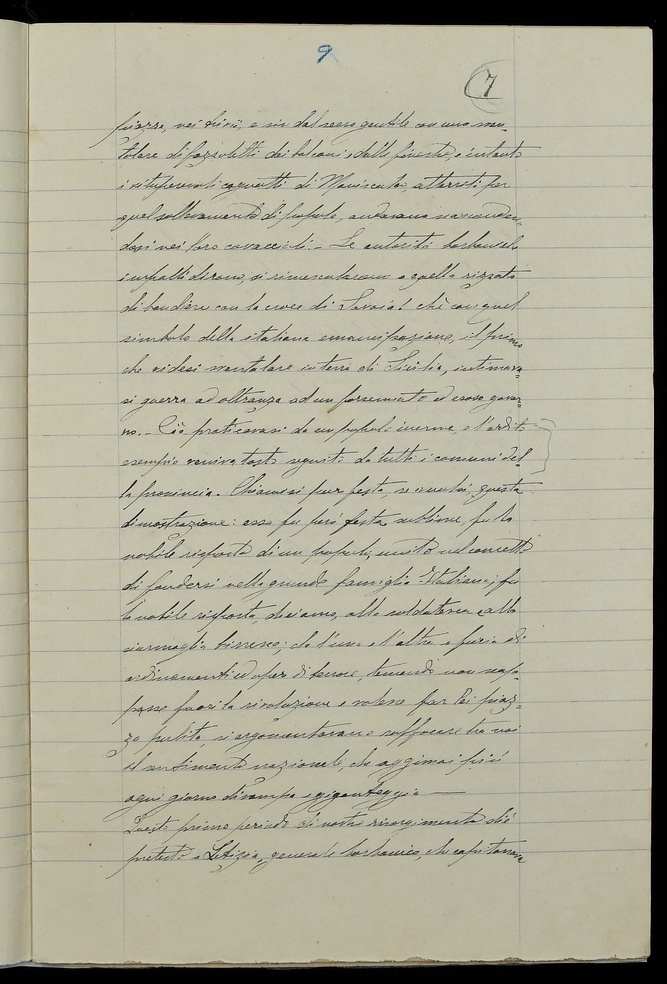 9
7
piazze, nei trivii, e sin dal sesso gentile con uno sven-
tolare di fazzoletti dai balconi e dalle finestre, e intanto
i vituperevoli cagnotti di Maniscalco, atterriti per
quel sollevamento di popolo, andavano nasconden-
dosi nei loro covaccioli. - Le autorità borboniche
impallidirono, si rimescolarono a quella rizzata
di bandiere con la croce di Savoia! chè con quel
simbolo della italiana emancipazione, il primo
che videsi sventolare in terra di Sicilia, intimava-
si guerra ad oltranza ad un forsennato ed esoso gover-
no. - Ciò praticavasi da un popolo inerme, e l'ardito
esempio veniva tosto seguito da tutti i comuni del-
la provincia. Chiamisi pur festa, se vuolsi, questa
dimostrazione: essa fu però festa sublime, fu la
nobile risposta di un popolo, unito nel concetto
di fondersi nella grande famiglia Italiana; fu
la nobile risposta, diciamo, alla soldatesca e alla
ciurmaglia birresca; che l'una e l'altra, a furia di
ordinamenti ed opere di terrore, temendo non scap-
passe fuori la rivoluzione e volesse far lei piaz-
za pulita, si argomentavano soffocare tra noi
il sentimento nazionale, che oggimai più
ogni giorno divampa e giganteggia —
Questo primo periodo di nostro risorgimento diè
pretesto a Letizia, generale borbonico, che capitanava